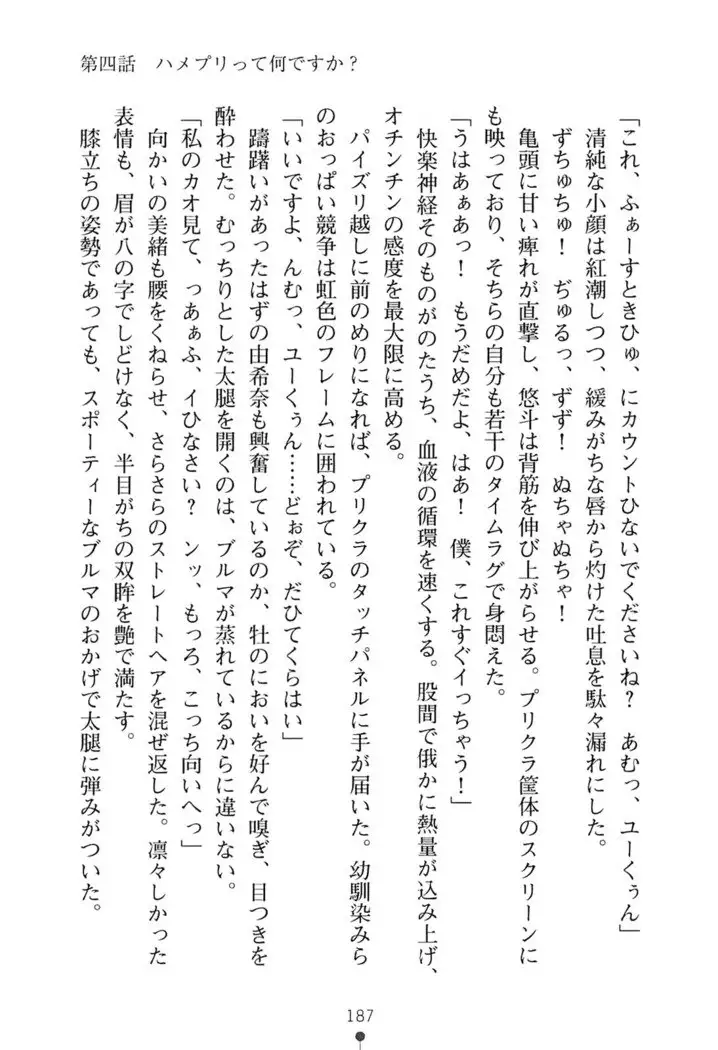 第四話　ハメプリって何ですか？
「これ、ふぁーすときひゅ、にカウントひないでくださいね？　あむっ、ユーくぅん」
清純な小顔は紅潮しつつ、緩みがちな唇から灼けた吐息を駄々漏れにした。
ずちゅちゅ！　ぢゅるっ、ずず！　ぬちゃぬちゃ！
亀頭に甘い痺れが直撃し、悠斗は背筋を伸び上がらせる。プリクラ筐体のスクリーンに
も映っており、そちらの自分も若干のタイムラグで身悶えた。
「うはあぁあっ！　もうだめだよ、はあ！　僕、これすぐイっちゃう！」
快楽神経そのものがのたうち、血液の循環を速くする。股間で俄かに熱量が込み上げ、
オチンチンの感度を最大限に高める。
パイズリ越しに前のめりになれば、プリクラのタッチパネルに手が届いた。幼馴染みら
のおっぱい競争は虹色のフレームに囲われている。
「いいですよ、んむっ、ユーくぅん……どぉぞ、だひてくらはい」
躊躇いがあったはずの由希奈も興奮しているのか、牡のにおいを好んで嗅ぎ、目つきを
酔わせた。むっちりとした太腿を開くのは、ブルマが蒸れているからに違いない。
「私のカオ見て、っあぁふ、イひなさい？　ンッ、もっろ、こっち向いへっ」
向かいの美緒も腰をくねらせ、さらさらのストレートヘアを混ぜ返した。凛々しかった
表情も、眉が八の字でしどけなく、半目がちの双眸を艶で満たす。
膝立ちの姿勢であっても、スポーティーなブルマのおかげで太腿に弾みがついた。
187